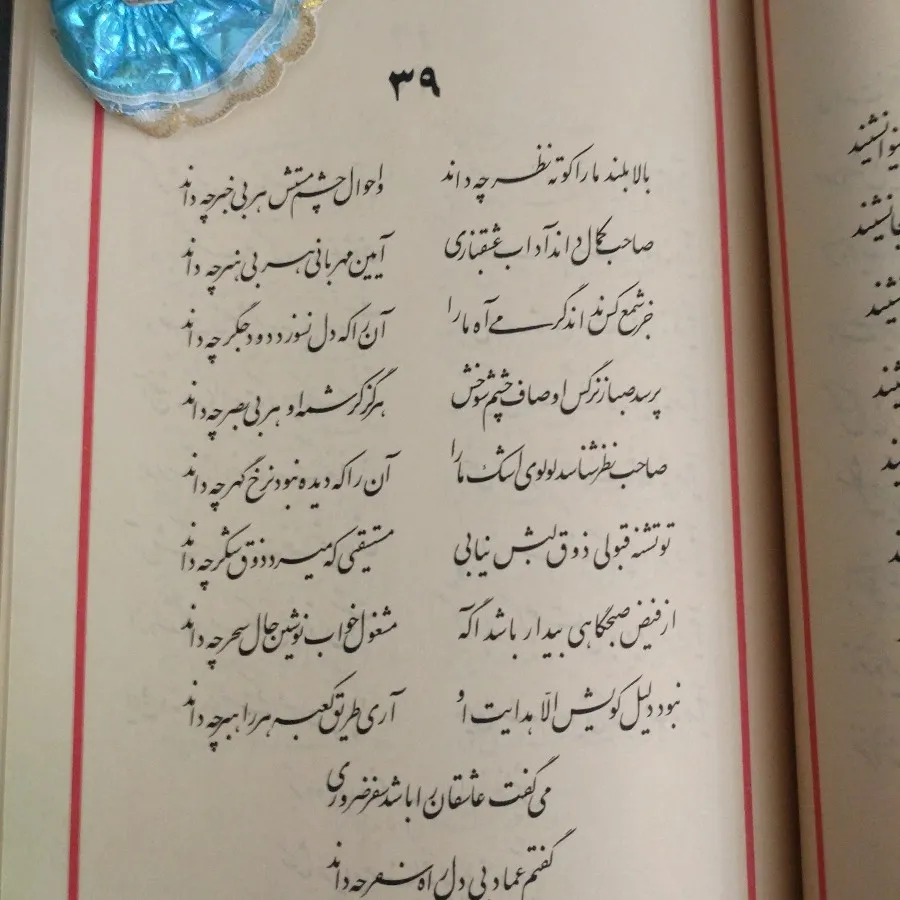 ۳۹
بالا بلند ما را کوته نظر چه داند واحوال چشم مستش هر بی خبر چه داند
صاحب کمال داند آداب عشقبازی آیین مهربانی هر بی هنر چه داند
جز شمع کس نداند گرمی آه ما را آن را که دل نسوزد دود جگر چه داند
پرسد صبا ز نرگس اوصاف چشم شوخش هرگز کرشمه او هر بی بصر چه داند
صاحب نظر شناسد لولوی اشک ما را آن را که دیده نبود نرخ گهر چه داند
تو تشنه قبولی ذوق لبش نیابی مستسقیی که میرد ذوق شکر چه داند
از فیض صبحگاهی بیدار باشد آگه مشغول خواب نوشین حال سحر چه داند
نبود دلیل کویش الّا هدایت او آری طریق کعبه هر راهبر چه داند
می گفت عاشقان را باشد سفر ضروری
گفتم عماد بی دل راه سفر چه داند
نشینند
نشینند